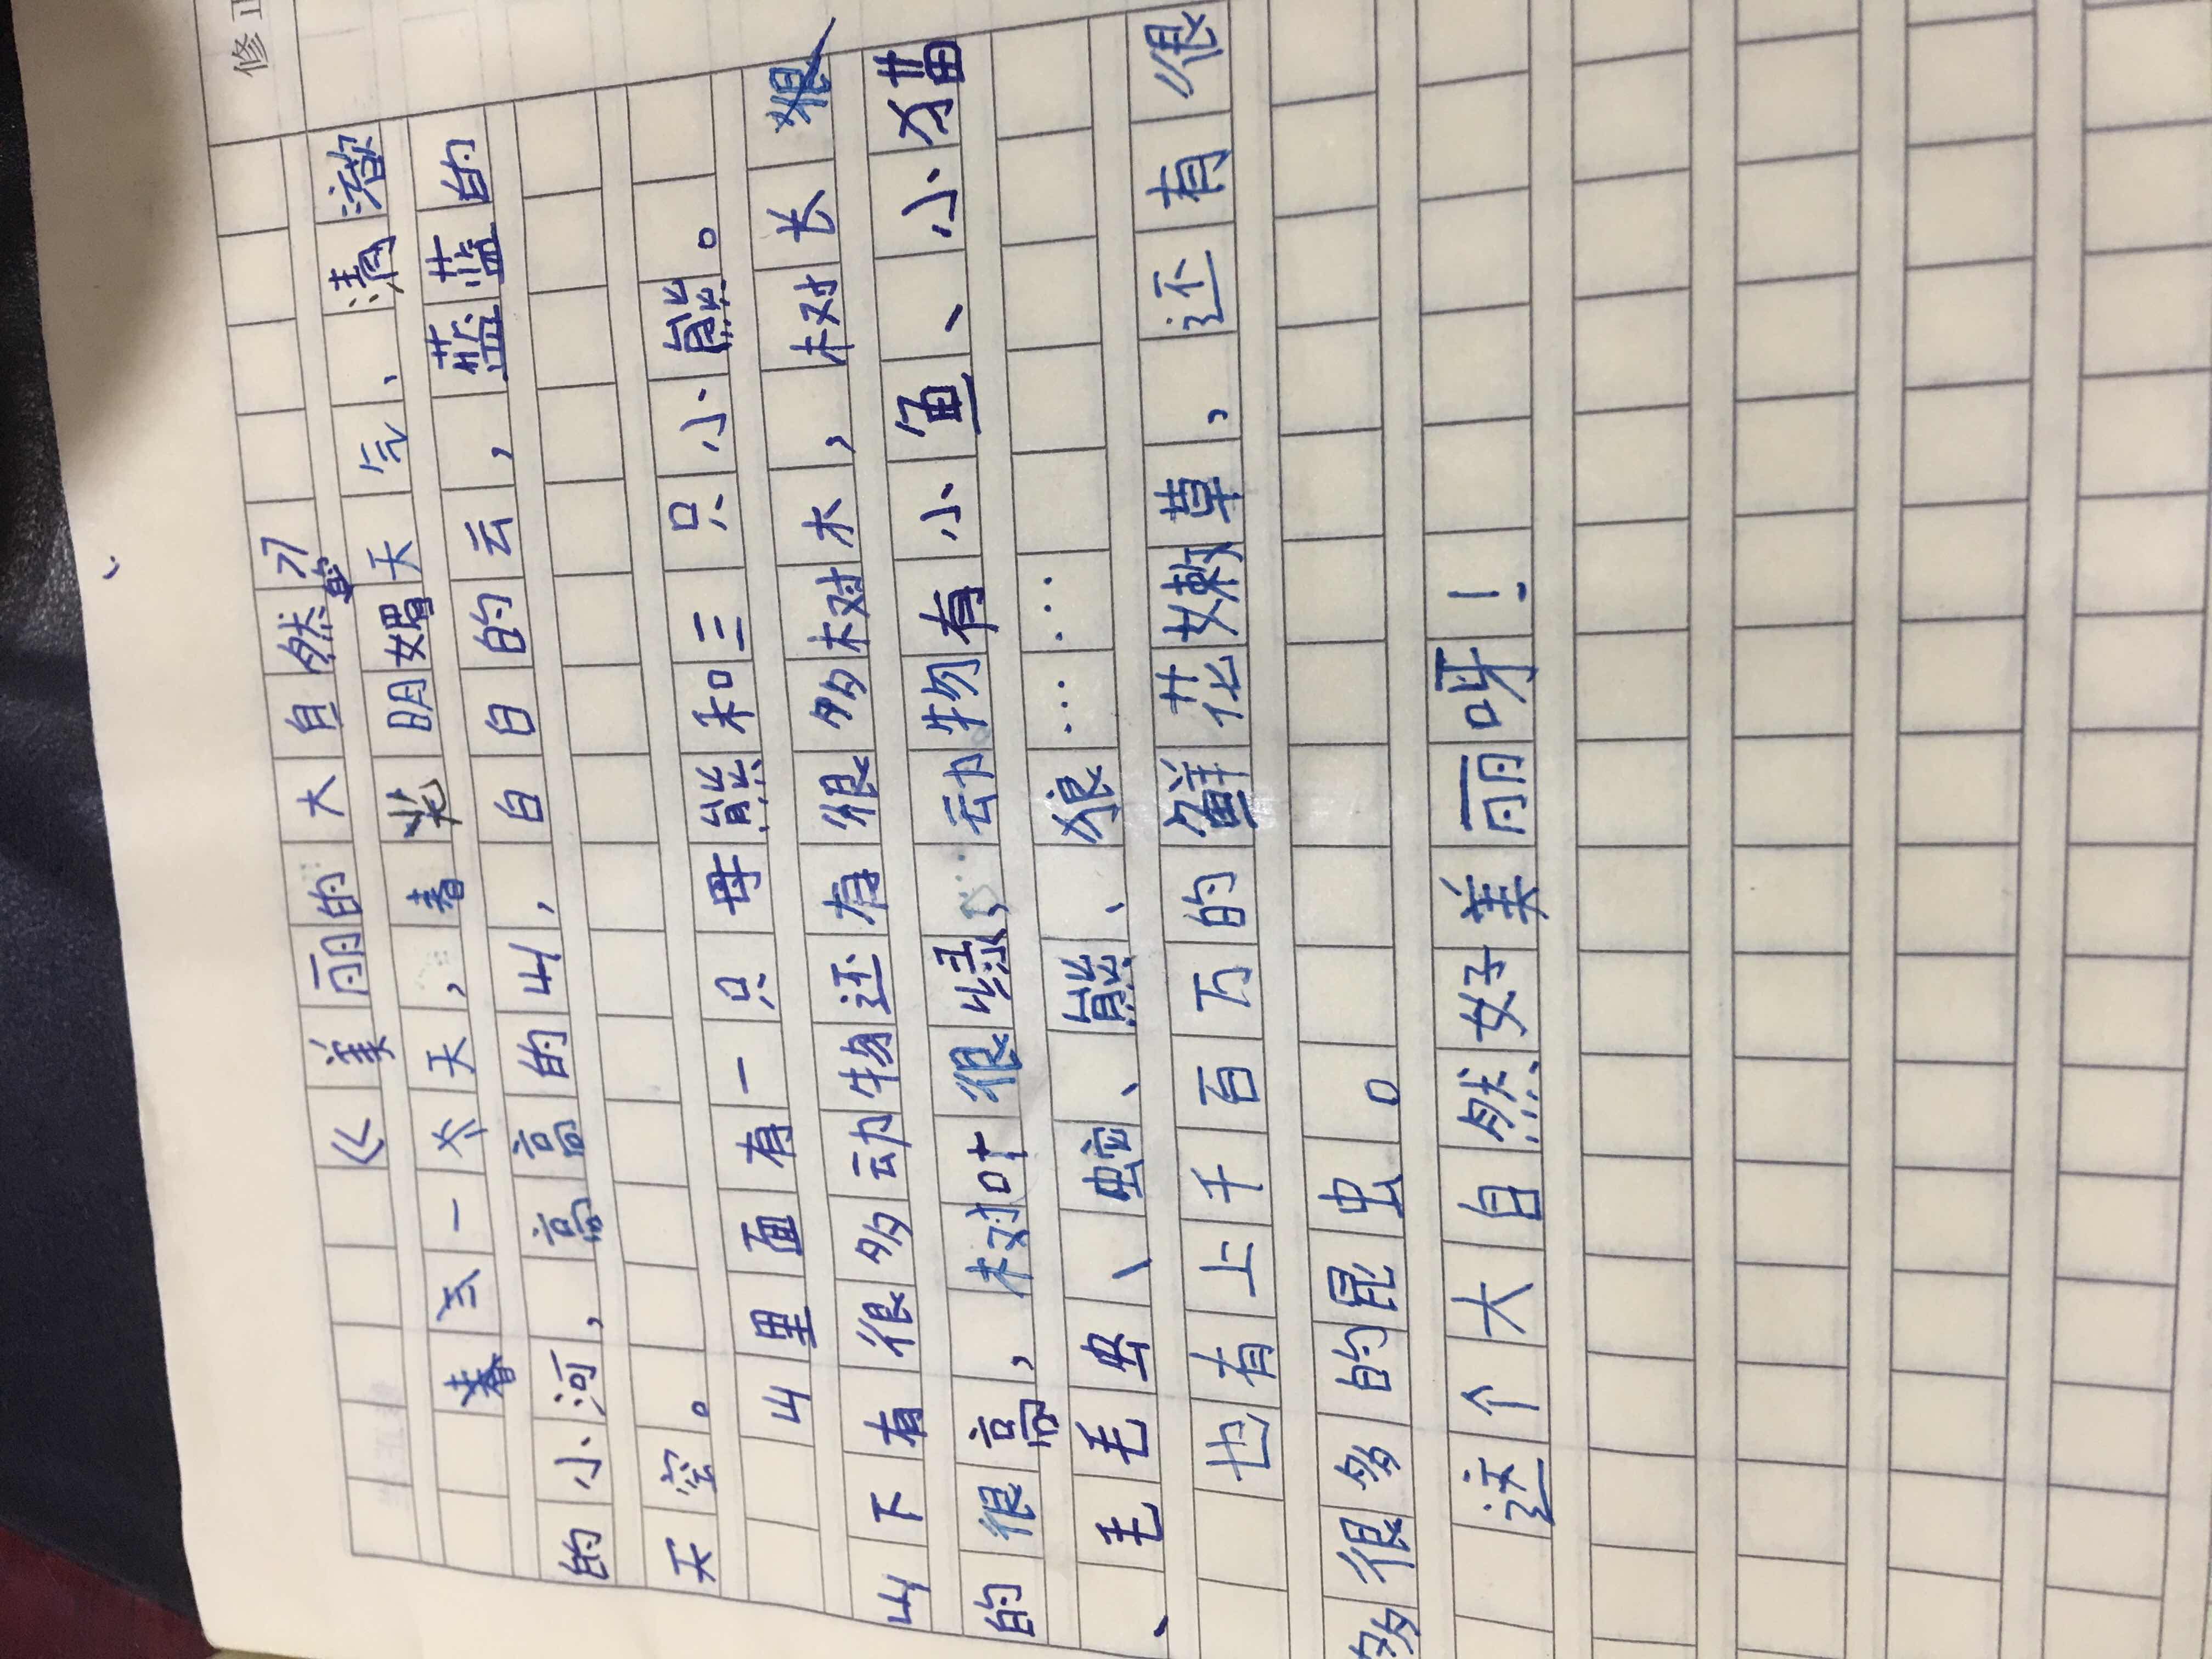 修正
《美丽的大自然》
春天一个天，春光明媚天气、清澈
的小河，高高的山，白白的云，蓝蓝的
天空。
山里面有一只母熊和三只小熊。
山下有很多动物还有很多树木，树长
的很高，树叶很绿，动物有小鱼、小猫
、毛毛虫、蛇、熊、狼……
也有上千百万的鲜花嫩草，还有很
多很多的昆虫。
这个大自然好美丽呀！